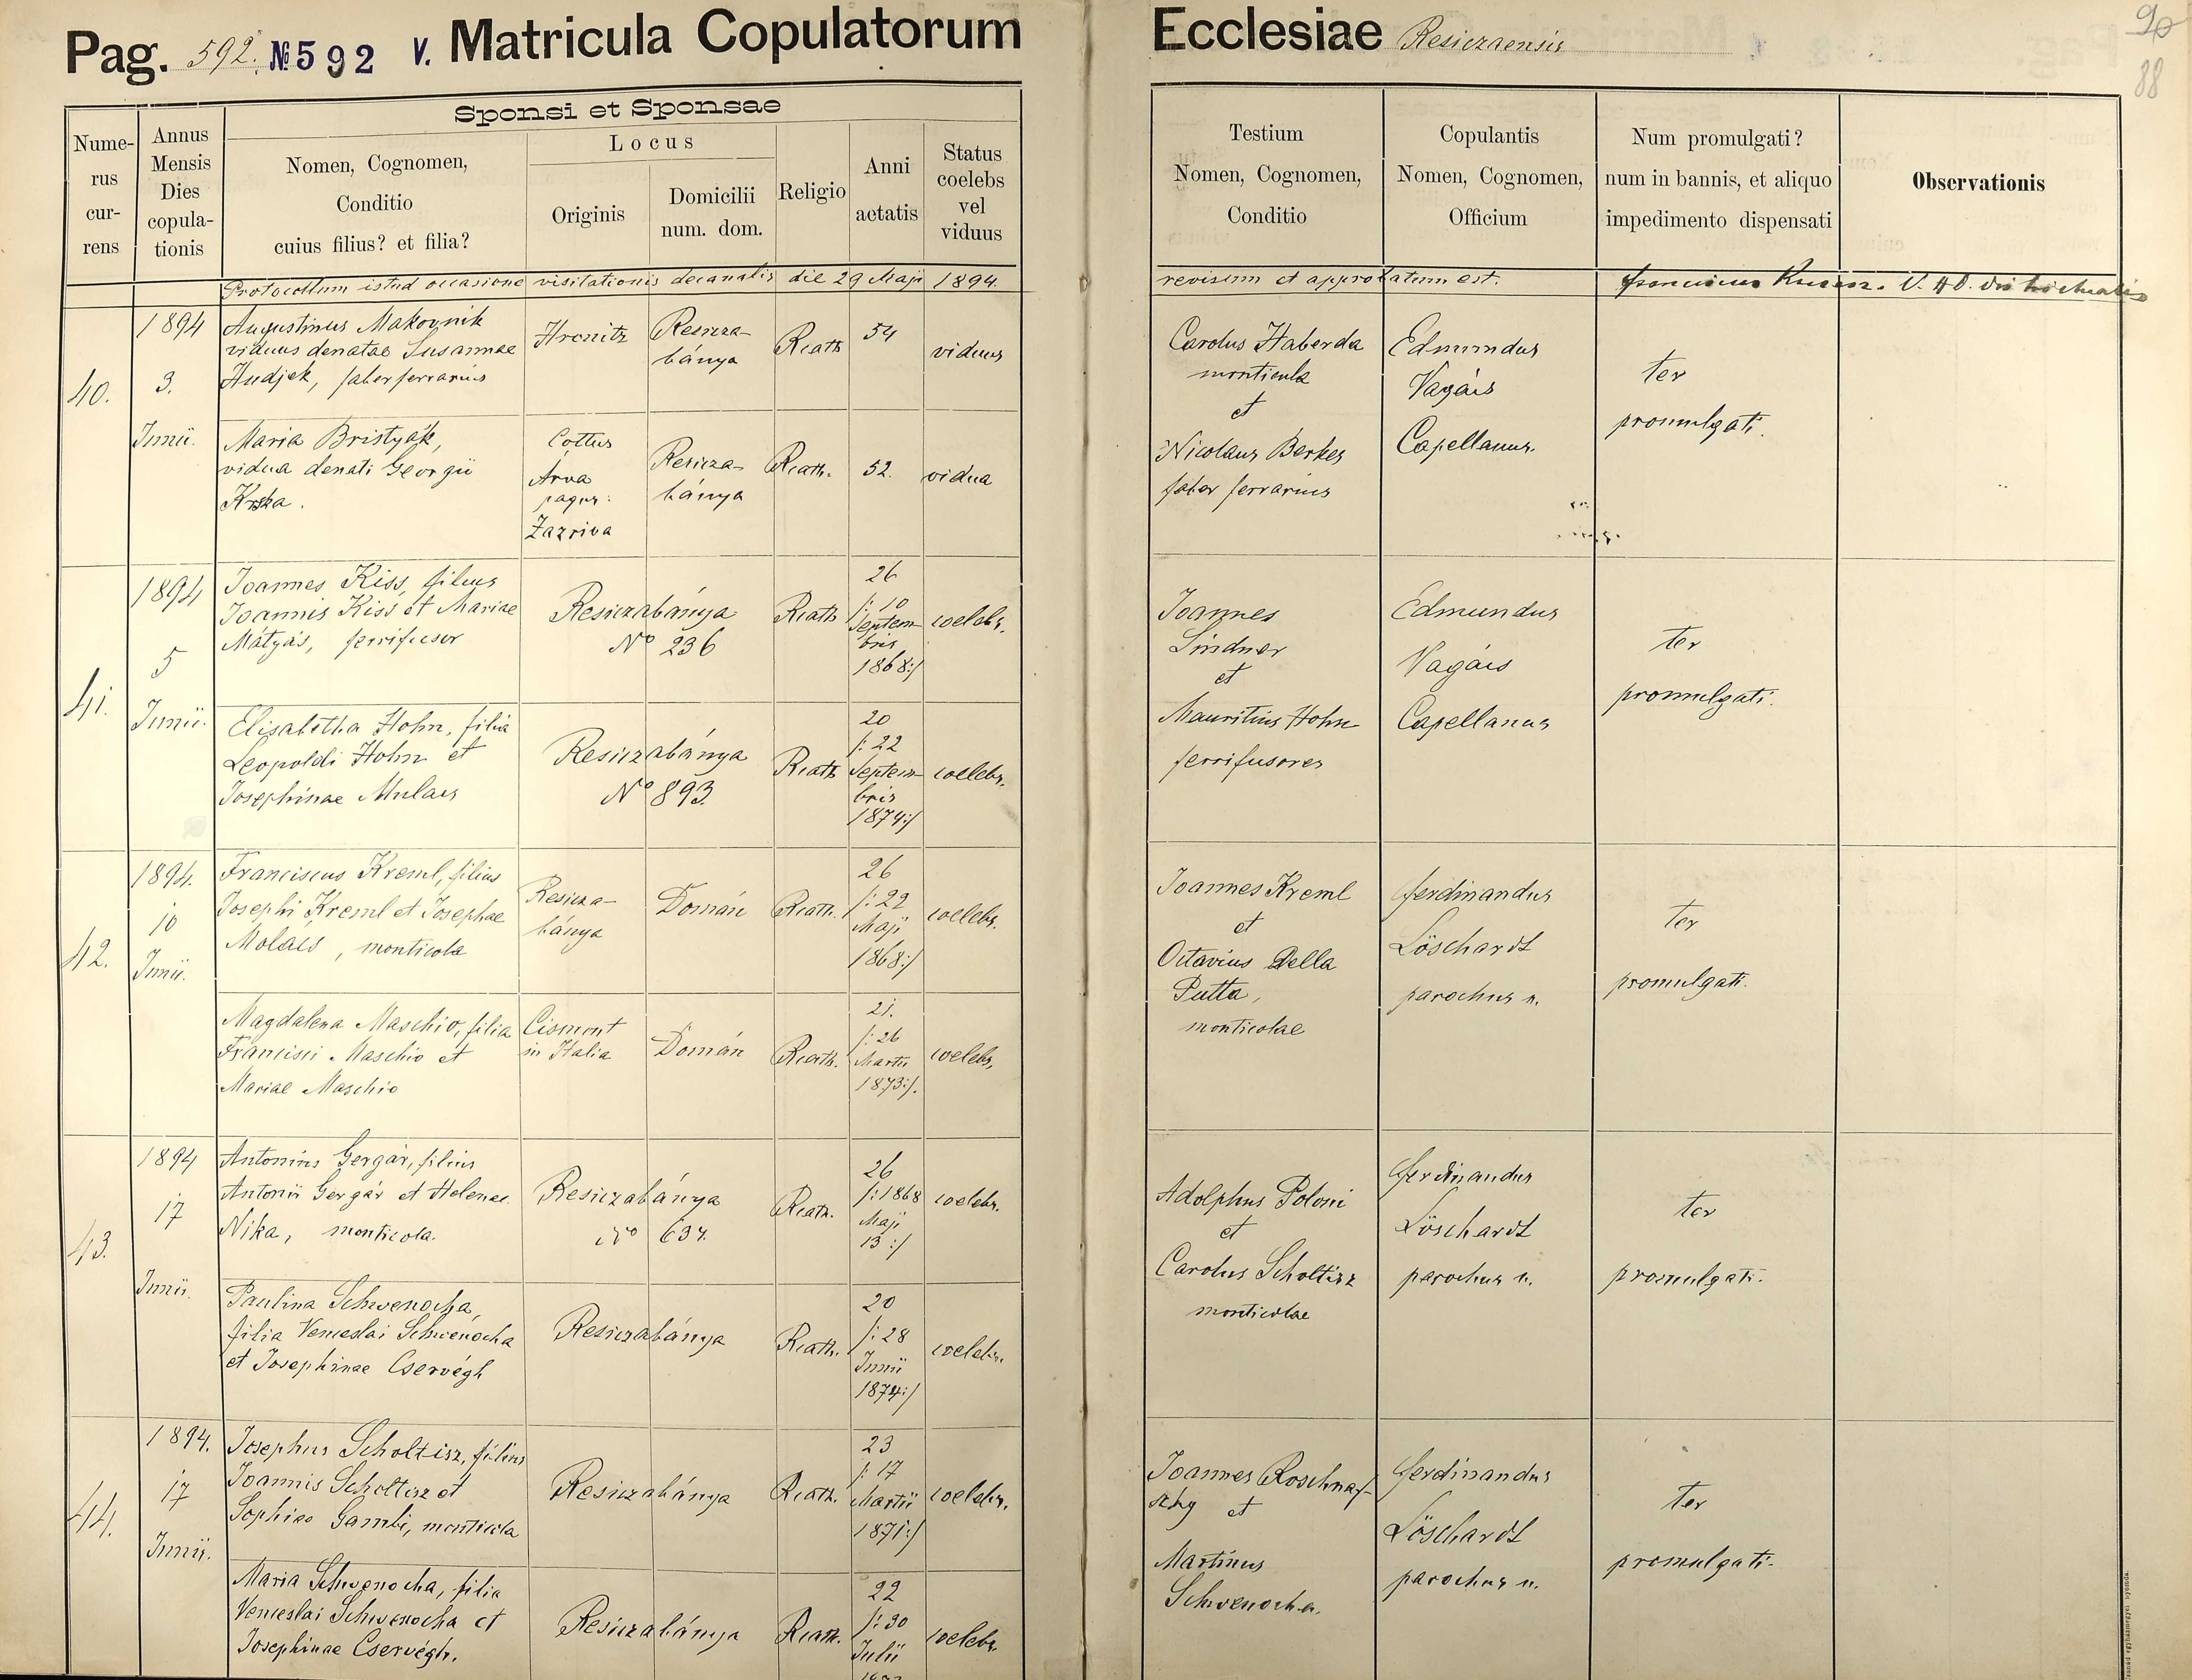 Pag. 592. № 592 V. Matricula Copulatorum Ecclesiae Resiczaensis
90
88
Sponsi et Sponsae
Nume-
rus
cur-
rens
Annus
Mensis
Dies
copula-
tionis
Nomen, Cognomen,
Conditio
cuius filius? et filia?
Locus
Originis
Domicilii
num. dom.
Religio
Anni
aetatis
Status
coelebs
vel
viduus
Testium
Nomen, Cognomen,
Conditio
Copulantis
Nomen, Cognomen,
Officium
Num promulgati?
num in bannis, et aliquo
impedimento dispensati
Observationis
Protocollum istud occasione visitationis decanalis die 29 Maji 1894. revisum et approbatum est.
40.
1894
3.
Junii.
Augustinus Makovnik
viduus denatae Susannae
Hudjek, faber ferrarius
Hronitz
Resicza-
bánya
Rcath
54
viduus
Maria Bristyák,
vidua denati Georgii
Krska.
Cottus
Árva
pagus:
Zazriva
Resicza-
bánya
Rcath.
52.
vidua
Carolus Haberda
monticula
et
Nicolaus Berkes
faber ferrarius
Edmundus
Vagács
Capellanus.
ter
promulgati.
41.
1894
5
Junii.
Joannes Kiss, filius
Joannis Kiss et Mariae
Mátyás, ferrifusor
Resiczabánya
№ 236
Rcath
26
/: 10
Septem-
bris
1868:/
coelebs.
Elisabetha Hohn, filia
Leopoldi Hohn et
Josephinae Mulacs
Resiczabánya
№ 893.
Rcath
20
/: 22
Septem-
bris
1874:/
coelebs.
Joannes
Lindner
et
Mauritius Hohn
ferrifusores
Edmundus
Vagács
Capellanus
ter
promulgati.
42.
1894.
10
Junii.
Franciscus Kreml, filius
Josephi Kreml et Josephae
Molacs, monticola
Resicza-
bánya
Domán
Rcath.
26
/: 22
Maji
1868:/
coelebs.
Magdalena Maschio, filia
Francisci Maschio et
Mariae Maschio
Cismont
in Italia
Domán
Rcath.
21.
/: 26
Martii
1873:/.
coelebs.
Joannes Kreml
et
Octavius Della
Putta,
monticolae
Ferdinandus
Löschardt
parochus n.
ter
promulgati.
43.
1894
17
Junii.
Antonius Gergár, filius
Antonii Gergár et Helenae
Nika, monticola.
Resiczabánya
№ 637.
Rcath.
26
/: 1868
Maji
13 :/
coelebs.
Paulina Schwenocha,
filia Venceslai Schwenocha
et Josephinae Cservégh
Resiczabánya
Rcath.
20
/: 28
Junii
1874:/
coelebs.
Adolphus Poloni
et
Carolus Scholtisz
monticolae
Ferdinandus
Löschardt
parochus n.
ter
promulgati.
44.
1894.
17
Junii.
Josephus Scholtisz, filius
Joannis Scholtisz et
Sophiae Gambi, monticola
Resiczabánya
Rcath.
23
/: 17
Martii
1871:/
coelebs.
Maria Schwenocha, filia
Venceslai Schwenocha et
Josephinae Cservégh.
Resiczabánya
Rcath.
22
/: 30
Julii
coelebs
Joannes
et
Martinus
Schwenocha.
Ferdinandus
Löschardt
parochus n.
ter
promulgati.